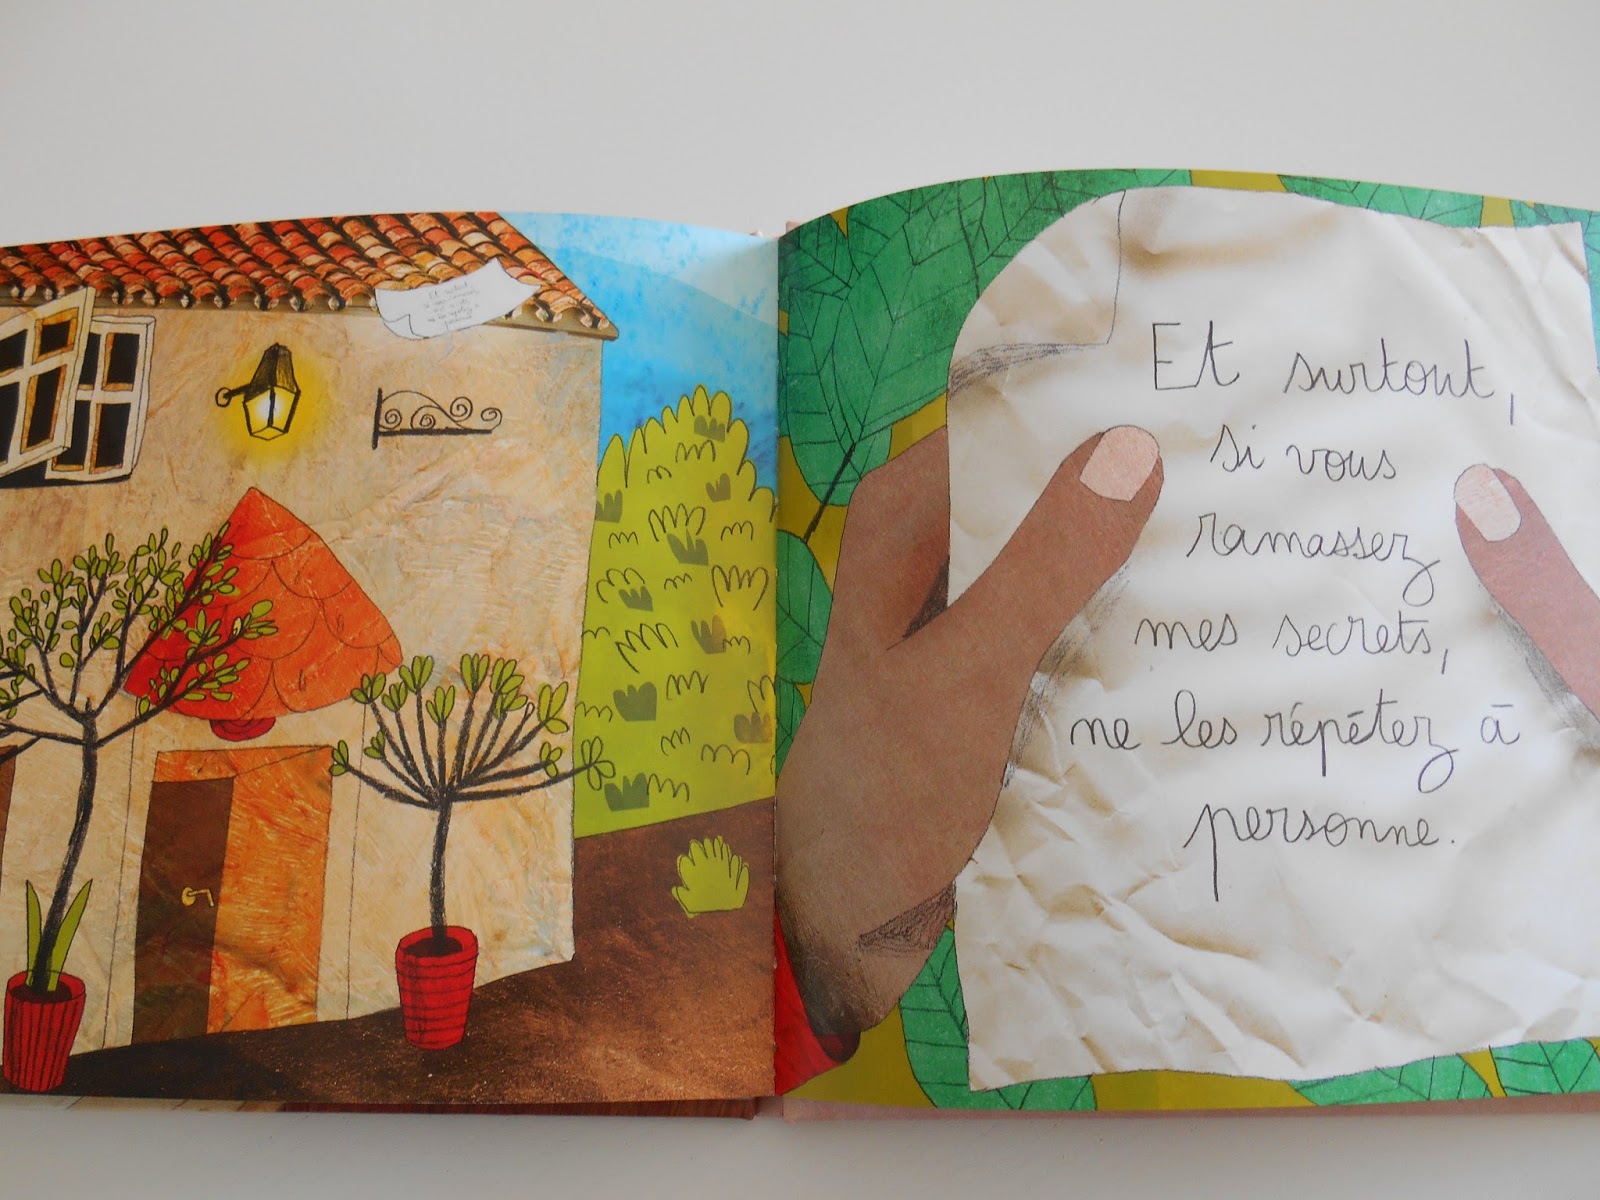 Et surtout,
si vous
ramassez
mes secrets,
ne les répétez à
personne.